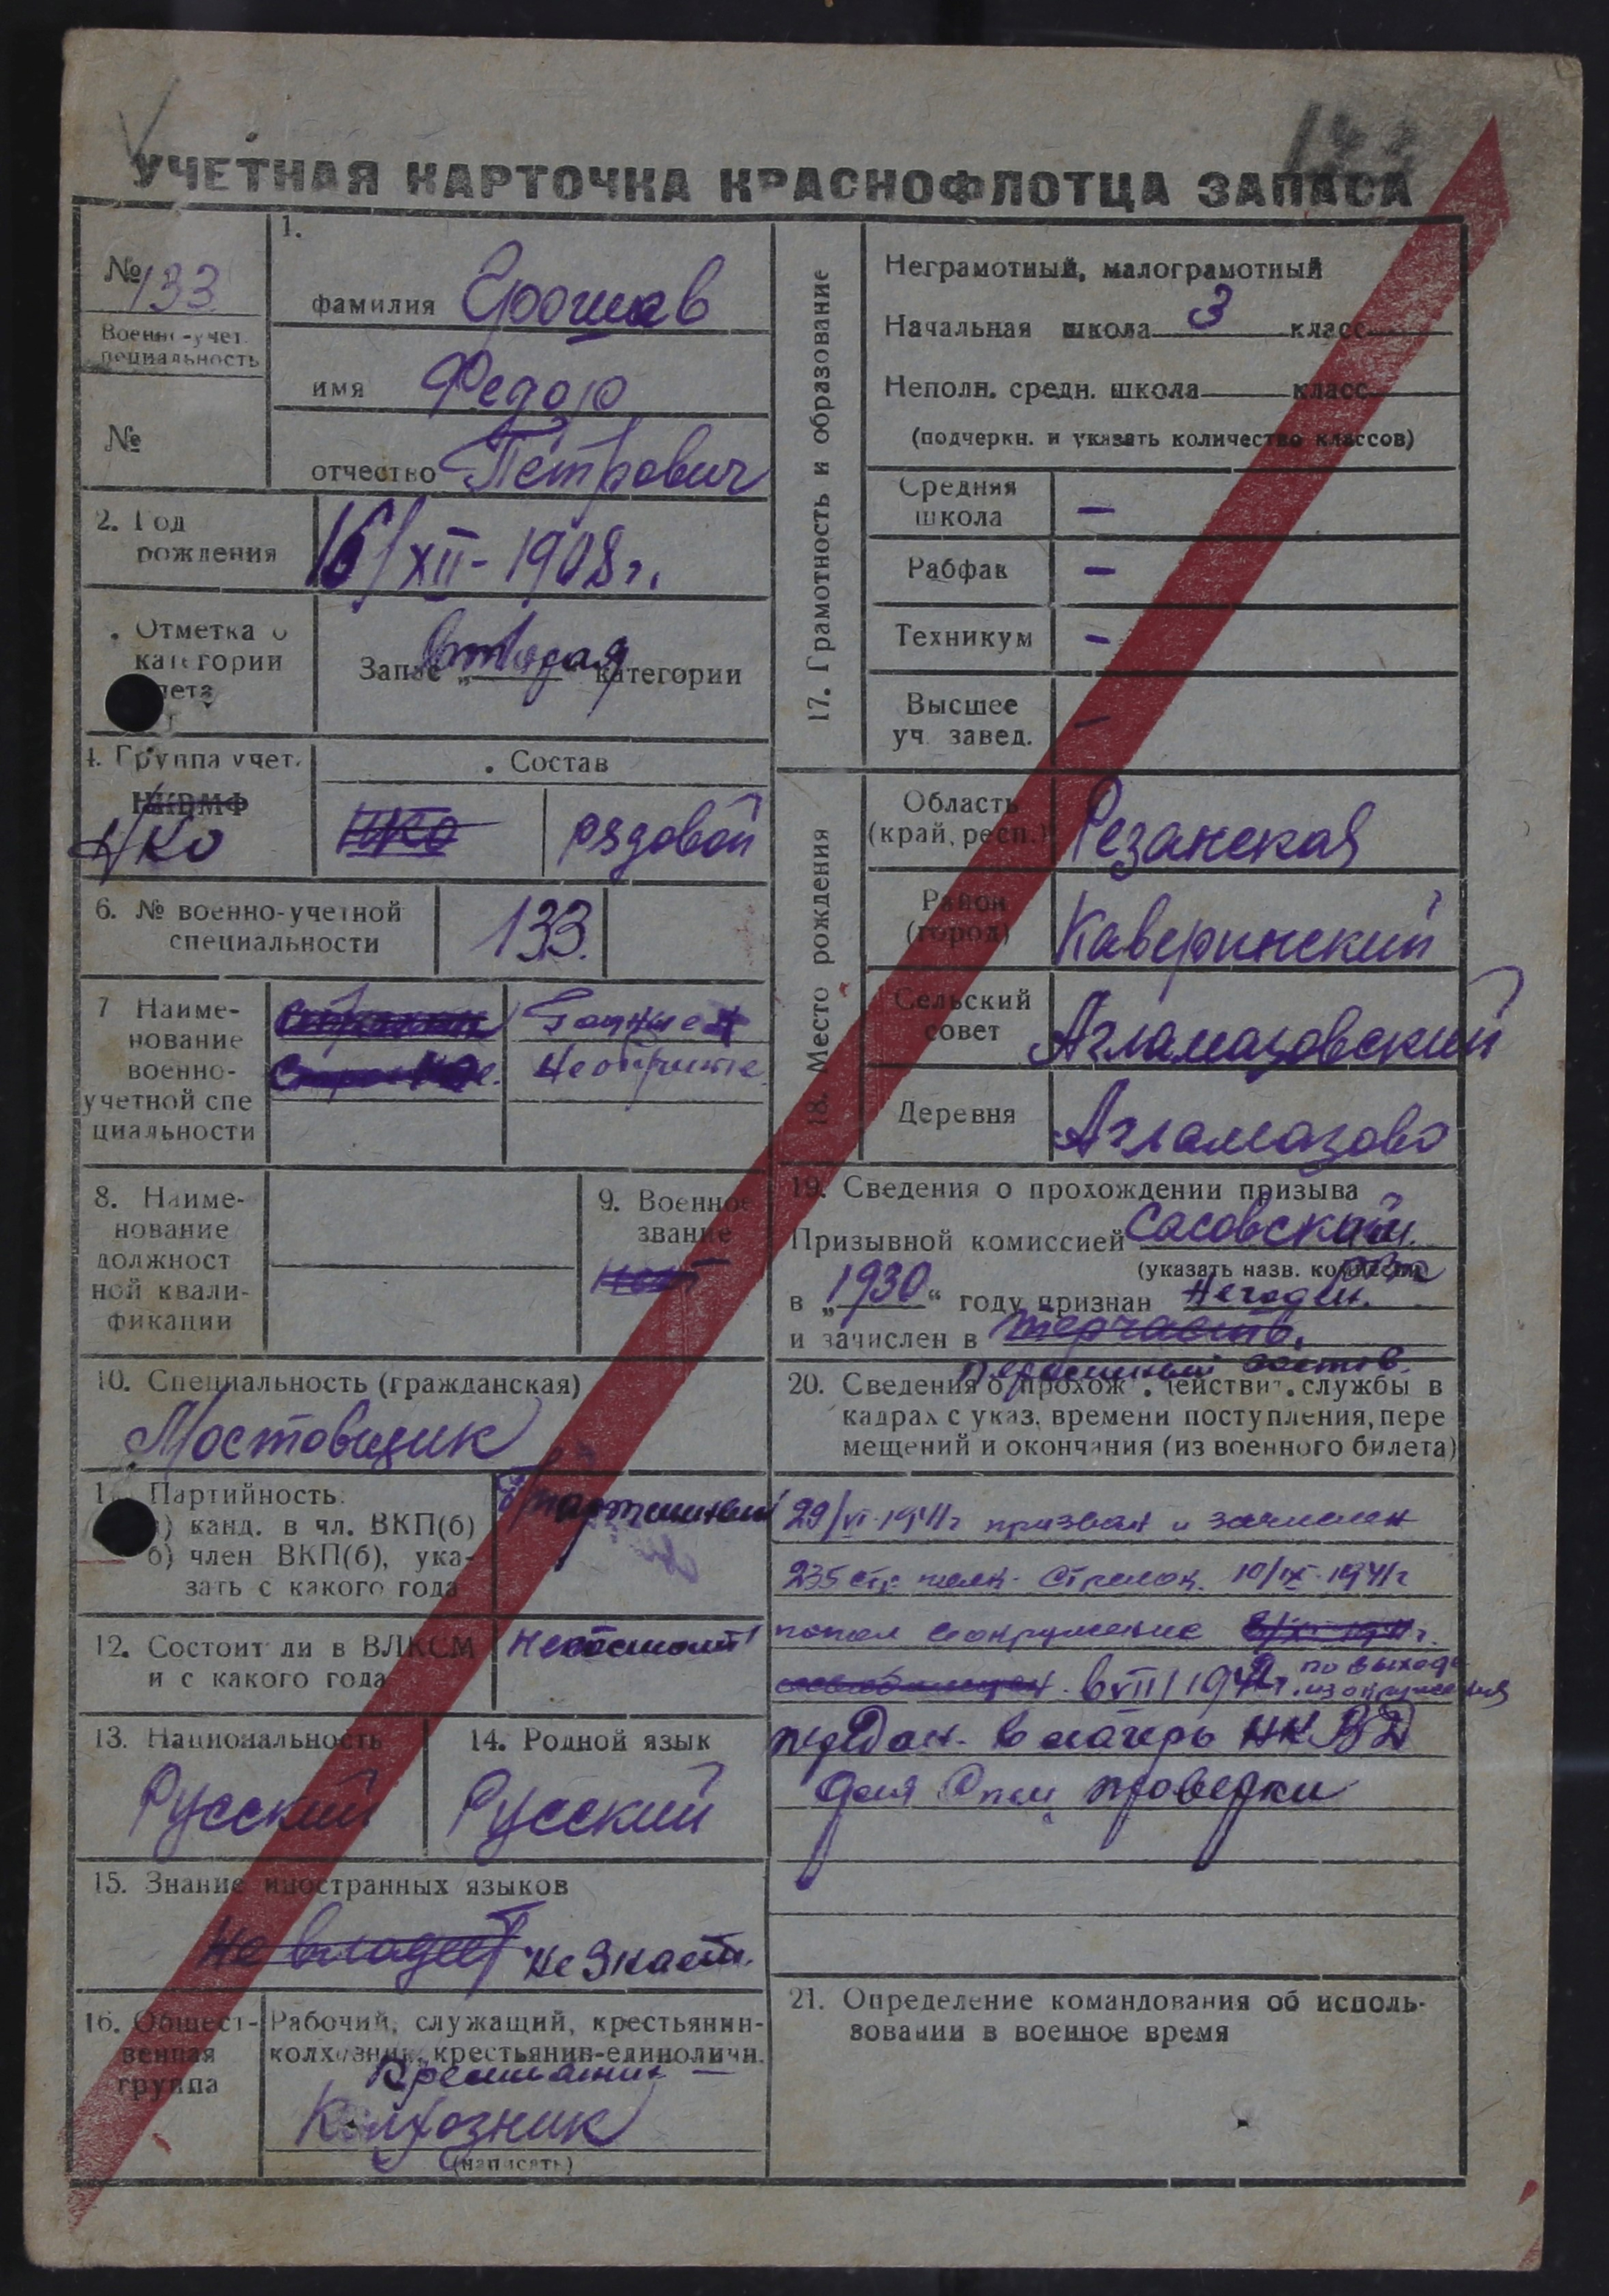 УЧЕТНАЯ КАРТОЧКА КРАСНОФЛОТЦА ЗАПАСА
№ 133
Военно-учет.
специальность
№
1.
фамилия
имя Федор
отчество Петрович
2. Год
рождения
16/XII-1908 г.
Отметка о
категории
учета
Запас „вторая“ категории
4. Группа учет.
НКВМФ
НКО
Состав
НКО
рядовой
6. № военно-учетной
специальности
133.
7 Наиме-
нование
военно-
учетной спе
циальности
8. Наиме-
нование
должност
ной квали-
фикации
9. Военное
звание
10. Специальность (гражданская)
Мостовщик
Партийность.
а) канд. в чл. ВКП(б)
б) член ВКП(б), ука-
зать с какого года
б/партийный
12. Состоит ли в ВЛКСМ
и с какого года
не состоит
13. Национальность
Русский
14. Родной язык
Русский
15. Знание иностранных языков
не владеет не знает.
16. Общест-
венная
группа
Рабочий, служащий, крестьянин-
колхозник, крестьянин-единоличн.
Колхозник
(написать)
17. Грамотность и образование
Неграмотный, малограмотный
Начальная школа 3 класс
Неполн. средн. школа класс
(подчеркн. и указать количество классов)
Средняя
школа —
Рабфак —
Техникум —
Высшее
уч. завед. —
18. Место рождения
Область
(край, респ.)
Резанская
Район
(город)
Каверинский
Сельский
совет
Агламазовский
Деревня
Агламазово
19. Сведения о прохождении призыва
Призывной комиссией Сасовский
(указать назв. комиссии)
в „1930“ году признан
и зачислен в терчасть.
состав.
20. Сведения о прохож. действит. службы в
кадрах с указ. времени поступления, пере
мещений и окончания (из военного билета)
29/VI-1941 г призван и зачислен
235 стр полк. Стрелок. 10/IX-1941 г
попал в окружение
в VIII 1942 г. по выходе
из окружения
передан в лагерь НКВД
для Спец проверки
21. Определение командования об исполь-
зовании в военное время